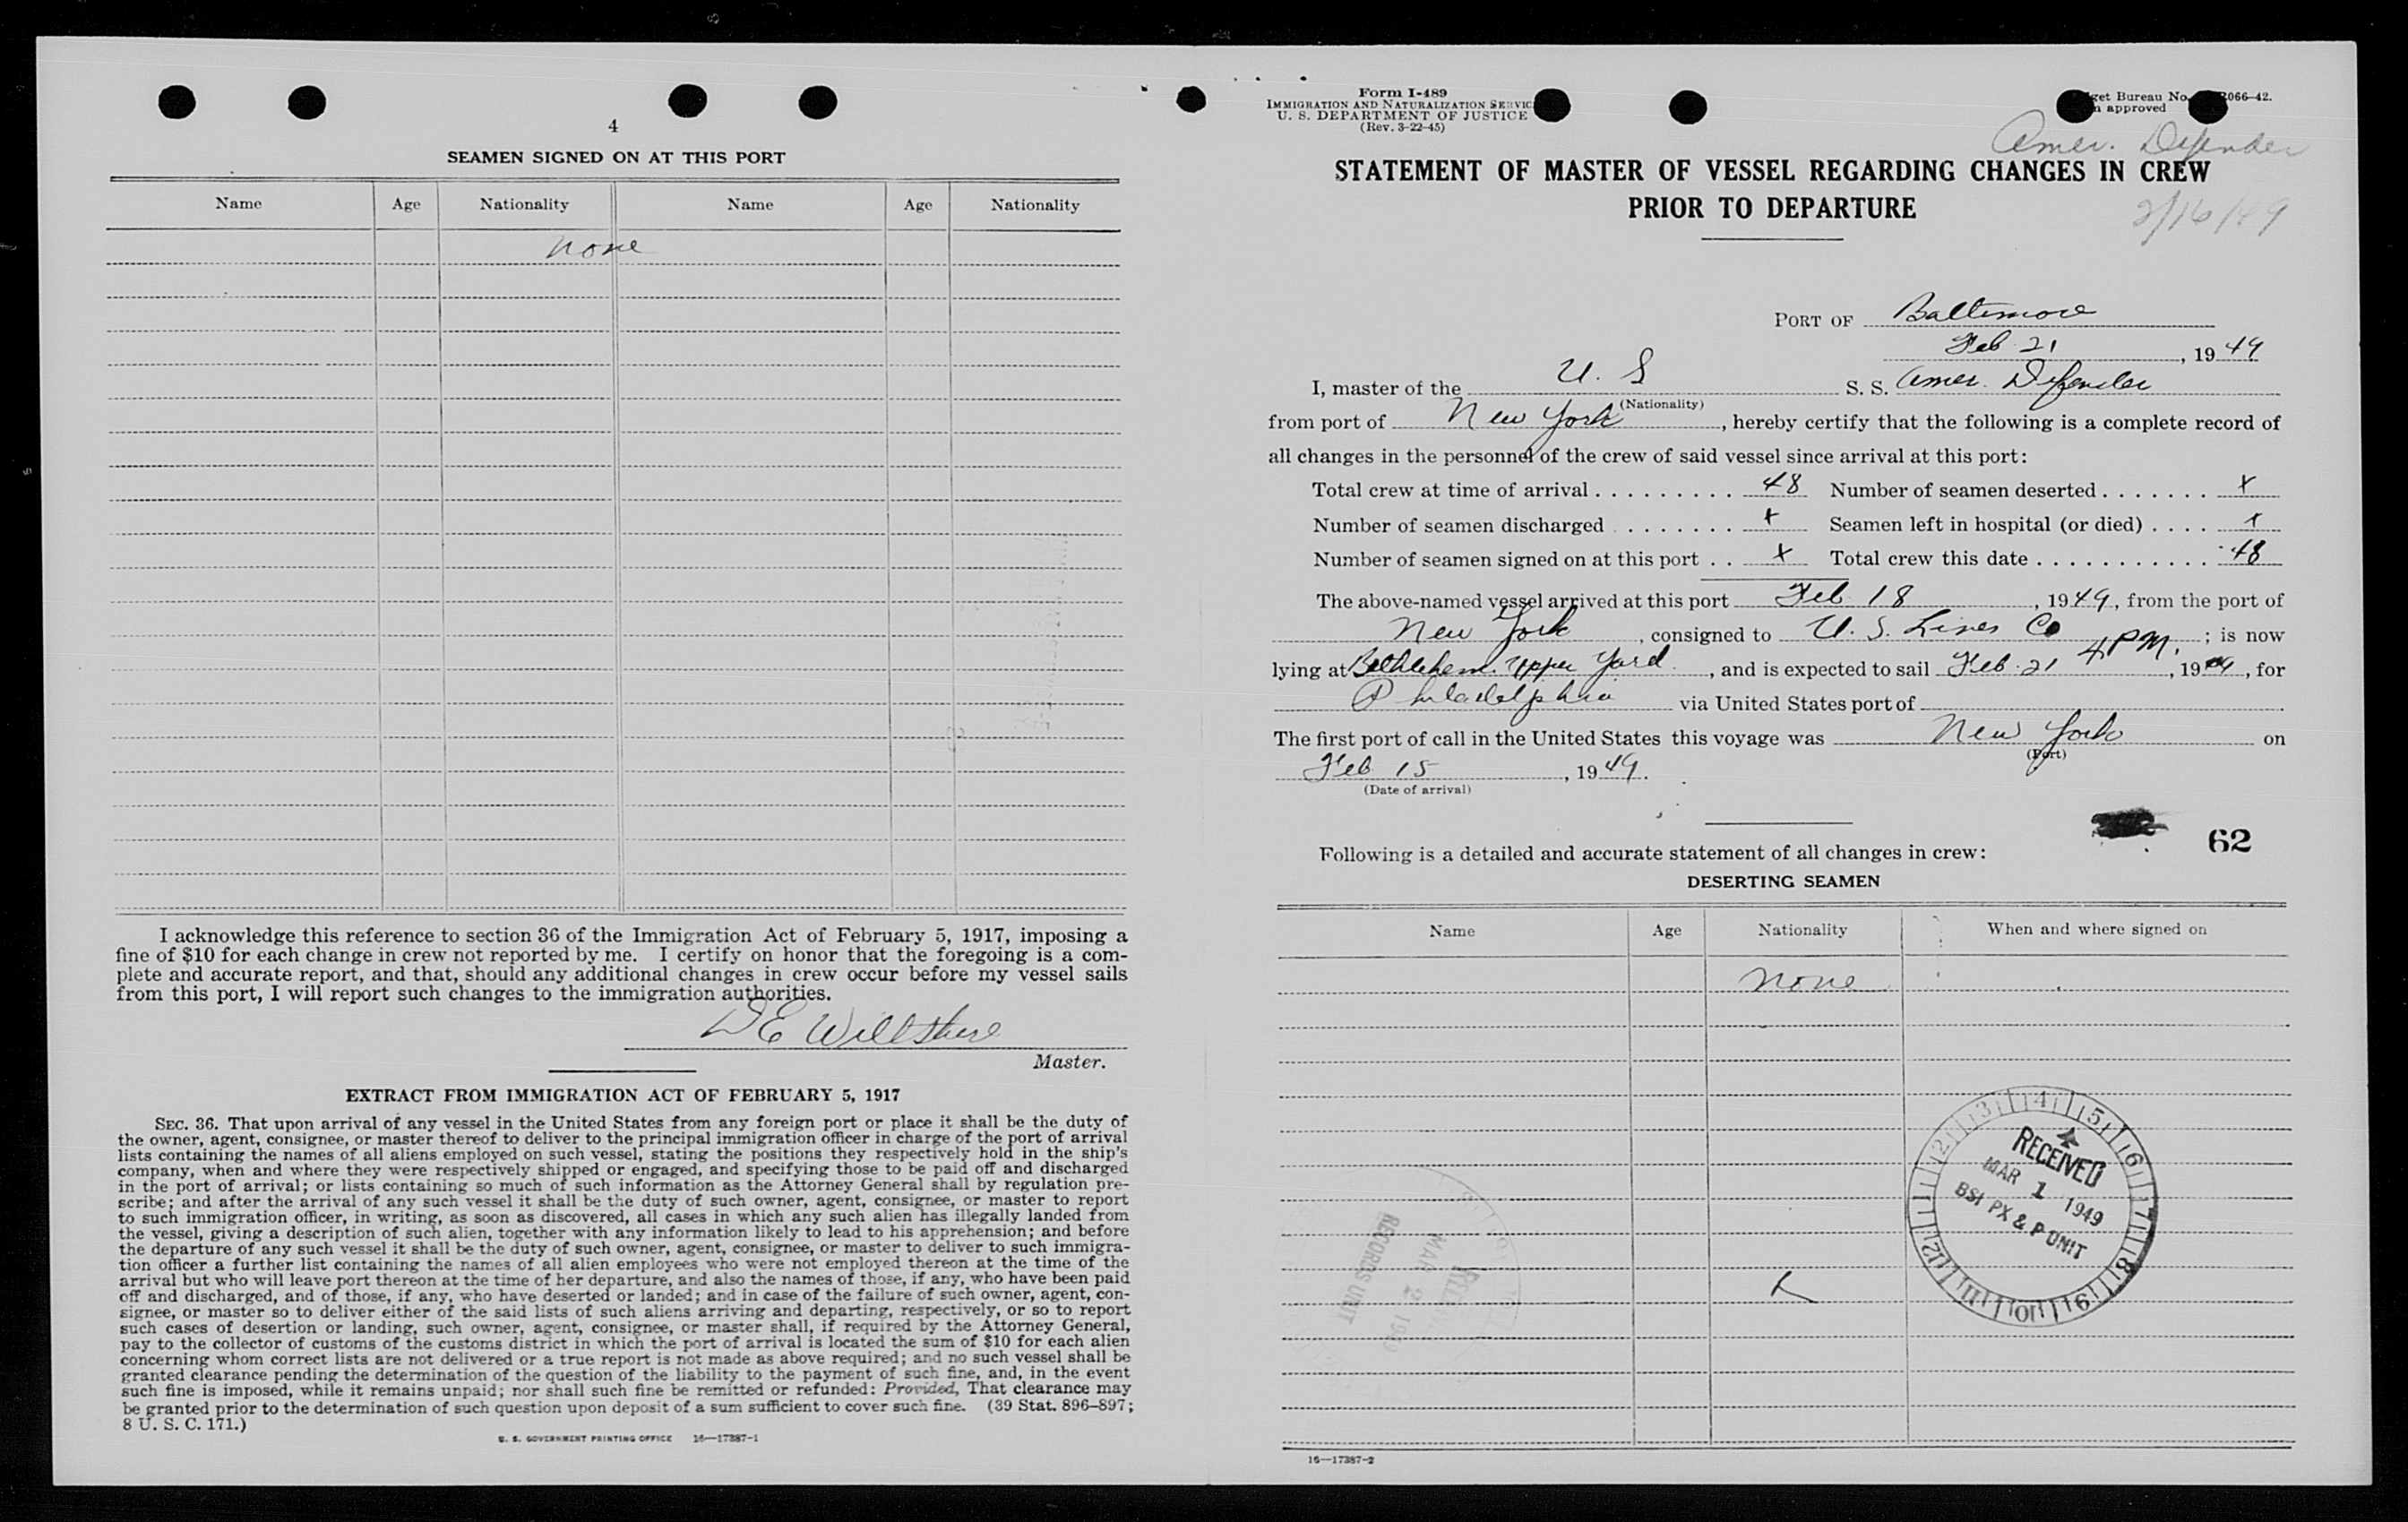 4
SEAMEN SIGNED ON AT THIS PORT
Name Age Nationality Name Age Nationality
none
I acknowledge this reference to section 36 of the Immigration Act of February 5, 1917, imposing a
fine of $10 for each change in crew not reported by me. I certify on honor that the foregoing is a com-
plete and accurate report, and that, should any additional changes in crew occur before my vessel sails
from this port, I will report such changes to the immigration authorities.
D E Wiltshire
Master.
EXTRACT FROM IMMIGRATION ACT OF FEBRUARY 5, 1917
SEC. 36. That upon arrival of any vessel in the United States from any foreign port or place it shall be the duty of
the owner, agent, consignee, or master thereof to deliver to the principal immigration officer in charge of the port of arrival
lists containing the names of all aliens employed on such vessel, stating the positions they respectively hold in the ship's
company, when and where they were respectively shipped or engaged, and specifying those to be paid off and discharged
in the port of arrival; or lists containing so much of such information as the Attorney General shall by regulation pre-
scribe; and after the arrival of any such vessel it shall be the duty of such owner, agent, consignee, or master to report
to such immigration officer, in writing, as soon as discovered, all cases in which any such alien has illegally landed from
the vessel, giving a description of such alien, together with any information likely to lead to his apprehension; and before
the departure of any such vessel it shall be the duty of such owner, agent, consignee, or master to deliver to such immigra-
tion officer a further list containing the names of all alien employees who were not employed thereon at the time of the
arrival but who will leave port thereon at the time of her departure, and also the names of those, if any, who have been paid
off and discharged, and of those, if any, who have deserted or landed; and in case of the failure of such owner, agent, con-
signee, or master so to deliver either of the said lists of such aliens arriving and departing, respectively, or so to report
such cases of desertion or landing, such owner, agent, consignee, or master shall, if required by the Attorney General,
pay to the collector of customs of the customs district in which the port of arrival is located the sum of $10 for each alien
concerning whom correct lists are not delivered or a true report is not made as above required; and no such vessel shall be
granted clearance pending the determination of the question of the liability to the payment of such fine, and, in the event
such fine is imposed, while it remains unpaid; nor shall such fine be remitted or refunded: Provided, That clearance may
be granted prior to the determination of such question upon deposit of a sum sufficient to cover such fine. (39 Stat. 896–897;
8 U. S. C. 171.)
U. S. GOVERNMENT PRINTING OFFICE 16—17387-1
Form I-489
IMMIGRATION AND NATURALIZATION SERVIC
U. S. DEPARTMENT OF JUSTICE
(Rev. 3-22-45)
get Bureau No. 066-42.
approved
Amer. Defender
STATEMENT OF MASTER OF VESSEL REGARDING CHANGES IN CREW
PRIOR TO DEPARTURE
2/16/49
PORT OF Baltimore
Feb 21, 1949
I, master of the U. S S. S. Amer. Defender
(Nationality)
from port of New York, hereby certify that the following is a complete record of
all changes in the personnel of the crew of said vessel since arrival at this port:
Total crew at time of arrival . . . . . . . . . 48 Number of seamen deserted . . . . . . . x
Number of seamen discharged . . . . . . . . x Seamen left in hospital (or died) . . . . x
Number of seamen signed on at this port . . x Total crew this date . . . . . . . . . . . 48
The above-named vessel arrived at this port Feb 18, 1949, from the port of
New York, consigned to U. S. Lines Co; is now
lying at Bethlehem Upper Yard, and is expected to sail Feb 21 4 PM., 1949, for
Philadelphia via United States port of
The first port of call in the United States this voyage was New York on
(Port)
Feb 15, 1949.
(Date of arrival)
62
Following is a detailed and accurate statement of all changes in crew:
DESERTING SEAMEN
Name Age Nationality When and where signed on
none
1 2 3 4 5 6 7 8 9 10 11 12
RECEIVED
MAR 1 1949
BSI PX & P UNIT
RECORDS UNIT
MAR 2
16—17387-2